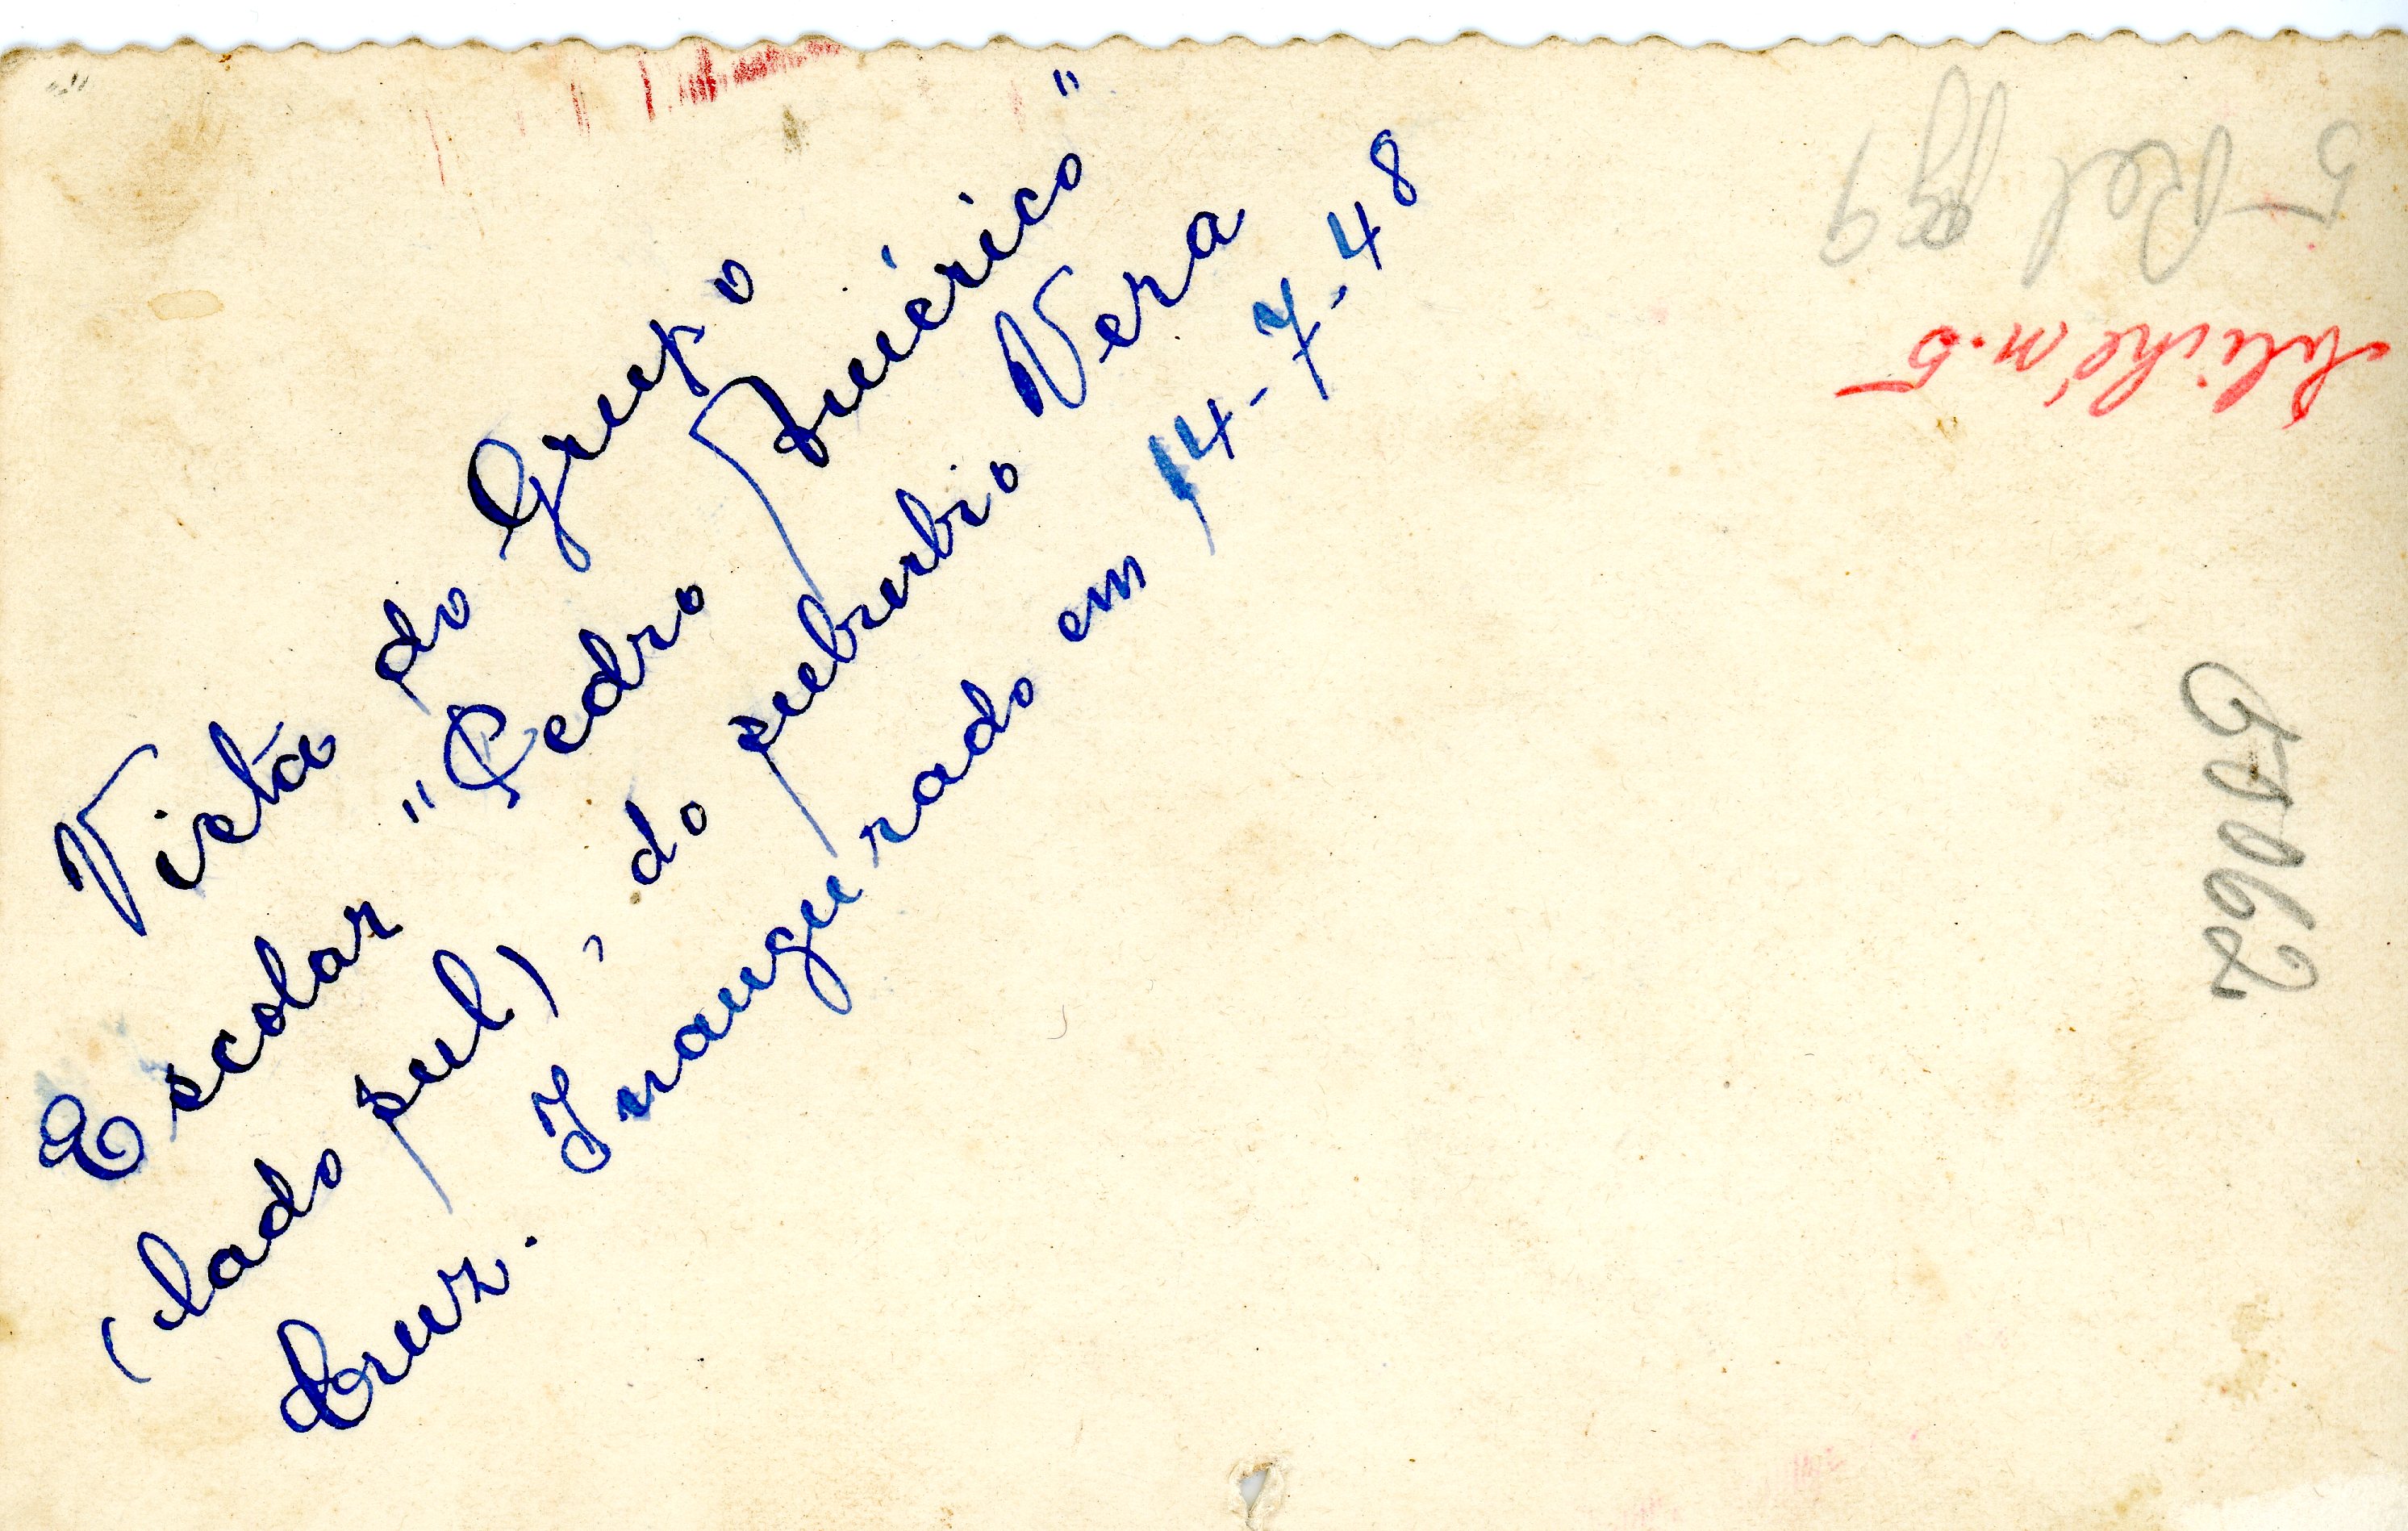 Vista do Grupo
Escolar "Pedro Américo"
(lado sul), do suburbio Vera
Cruz. Inaugurado em 14-7-48
Clichê n. 5